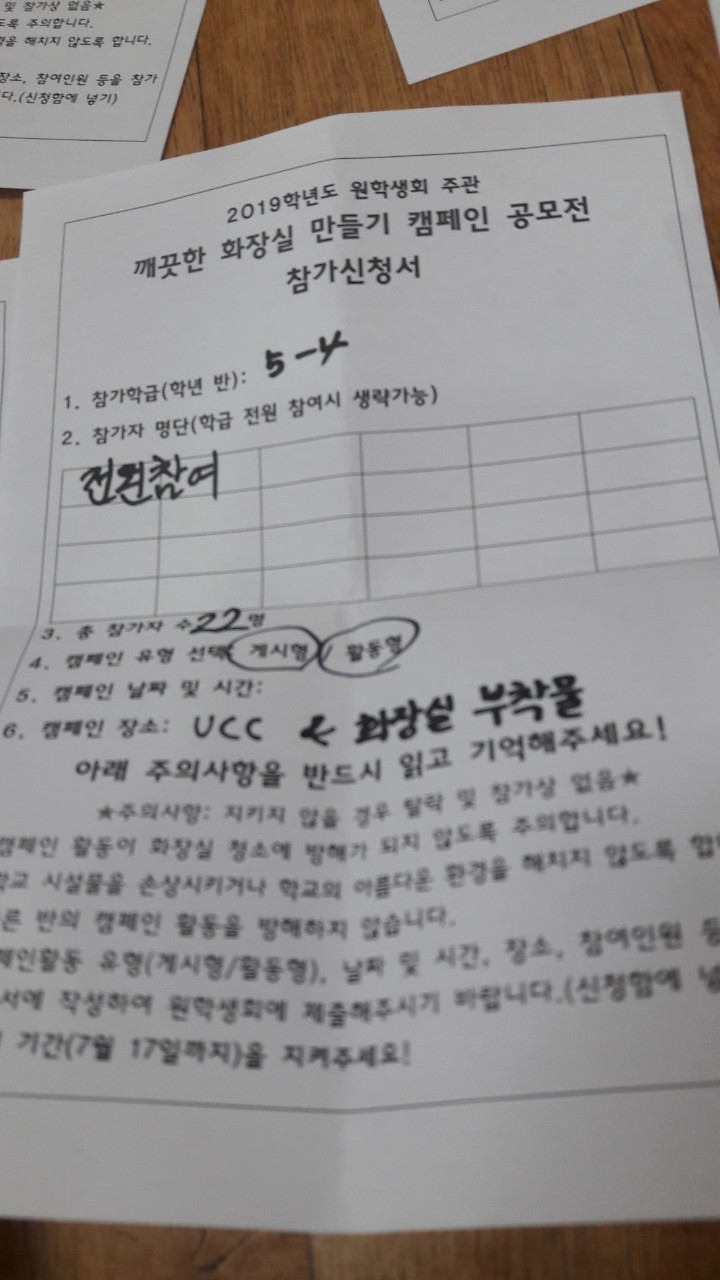 및 참가상 없음★
도록 주의합니다.
을 해치지 않도록 합니다.
장소, 참여인원 등을 참가
다.(신청함에 넣기)
2019학년도 원학생회 주관
깨끗한 화장실 만들기 캠페인 공모전
참가신청서
1. 참가학급(학년 반): 5-4
2. 참가자 명단(학급 전원 참여시 생략가능)
전원참여
3. 총 참가자 수 22명
4. 캠페인 유형 선택: 게시형 / 활동형
5. 캠페인 날짜 및 시간:
6. 캠페인 장소: UCC & 화장실 부착물
아래 주의사항을 반드시 읽고 기억해주세요!
★주의사항: 지키지 않을 경우 탈락 및 참가상 없음★
캠페인 활동이 화장실 청소에 방해가 되지 않도록 주의합니다.
학교 시설물을 손상시키거나 학교의 아름다운 환경을 해치지 않도록 합
른 반의 캠페인 활동을 방해하지 않습니다.
페인활동 유형(게시형/활동형), 날짜 및 시간, 장소, 참여인원 등
서에 작성하여 원학생회에 제출해주시기 바랍니다.(신청함에 넣
기간(7월 17일까지)을 지켜주세요!